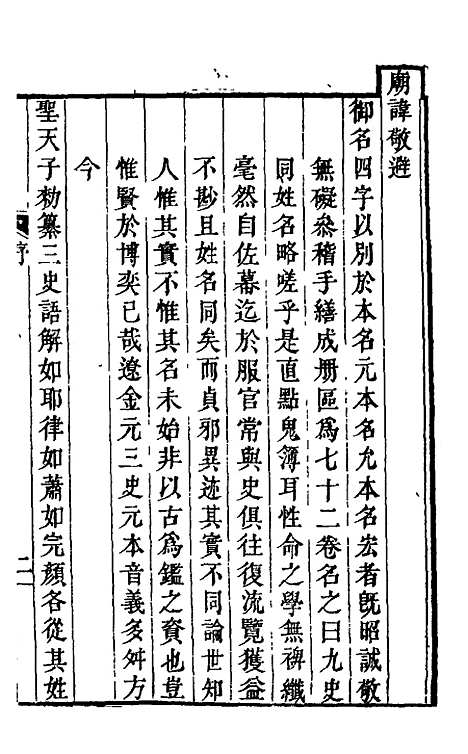 廟諱敬避
御名四字以別於本名元本名允本名宏者既昭誠敬
無礙參稽手繕成册區爲七十二卷名之曰九史
同姓名略嗟乎是直點鬼簿耳性命之學無裨纖
毫然自佐幕迄於服官常與史俱往復流覽獲益
不尠且姓名同矣而貞邪異迹其實不同論世知
人惟其實不惟其名未始非以古爲鑑之資也豈
惟賢於博奕已哉遼金元三史元本音義多舛方
今
聖天子勑纂三史語解如耶律如蕭如完顏各從其姓
序
二